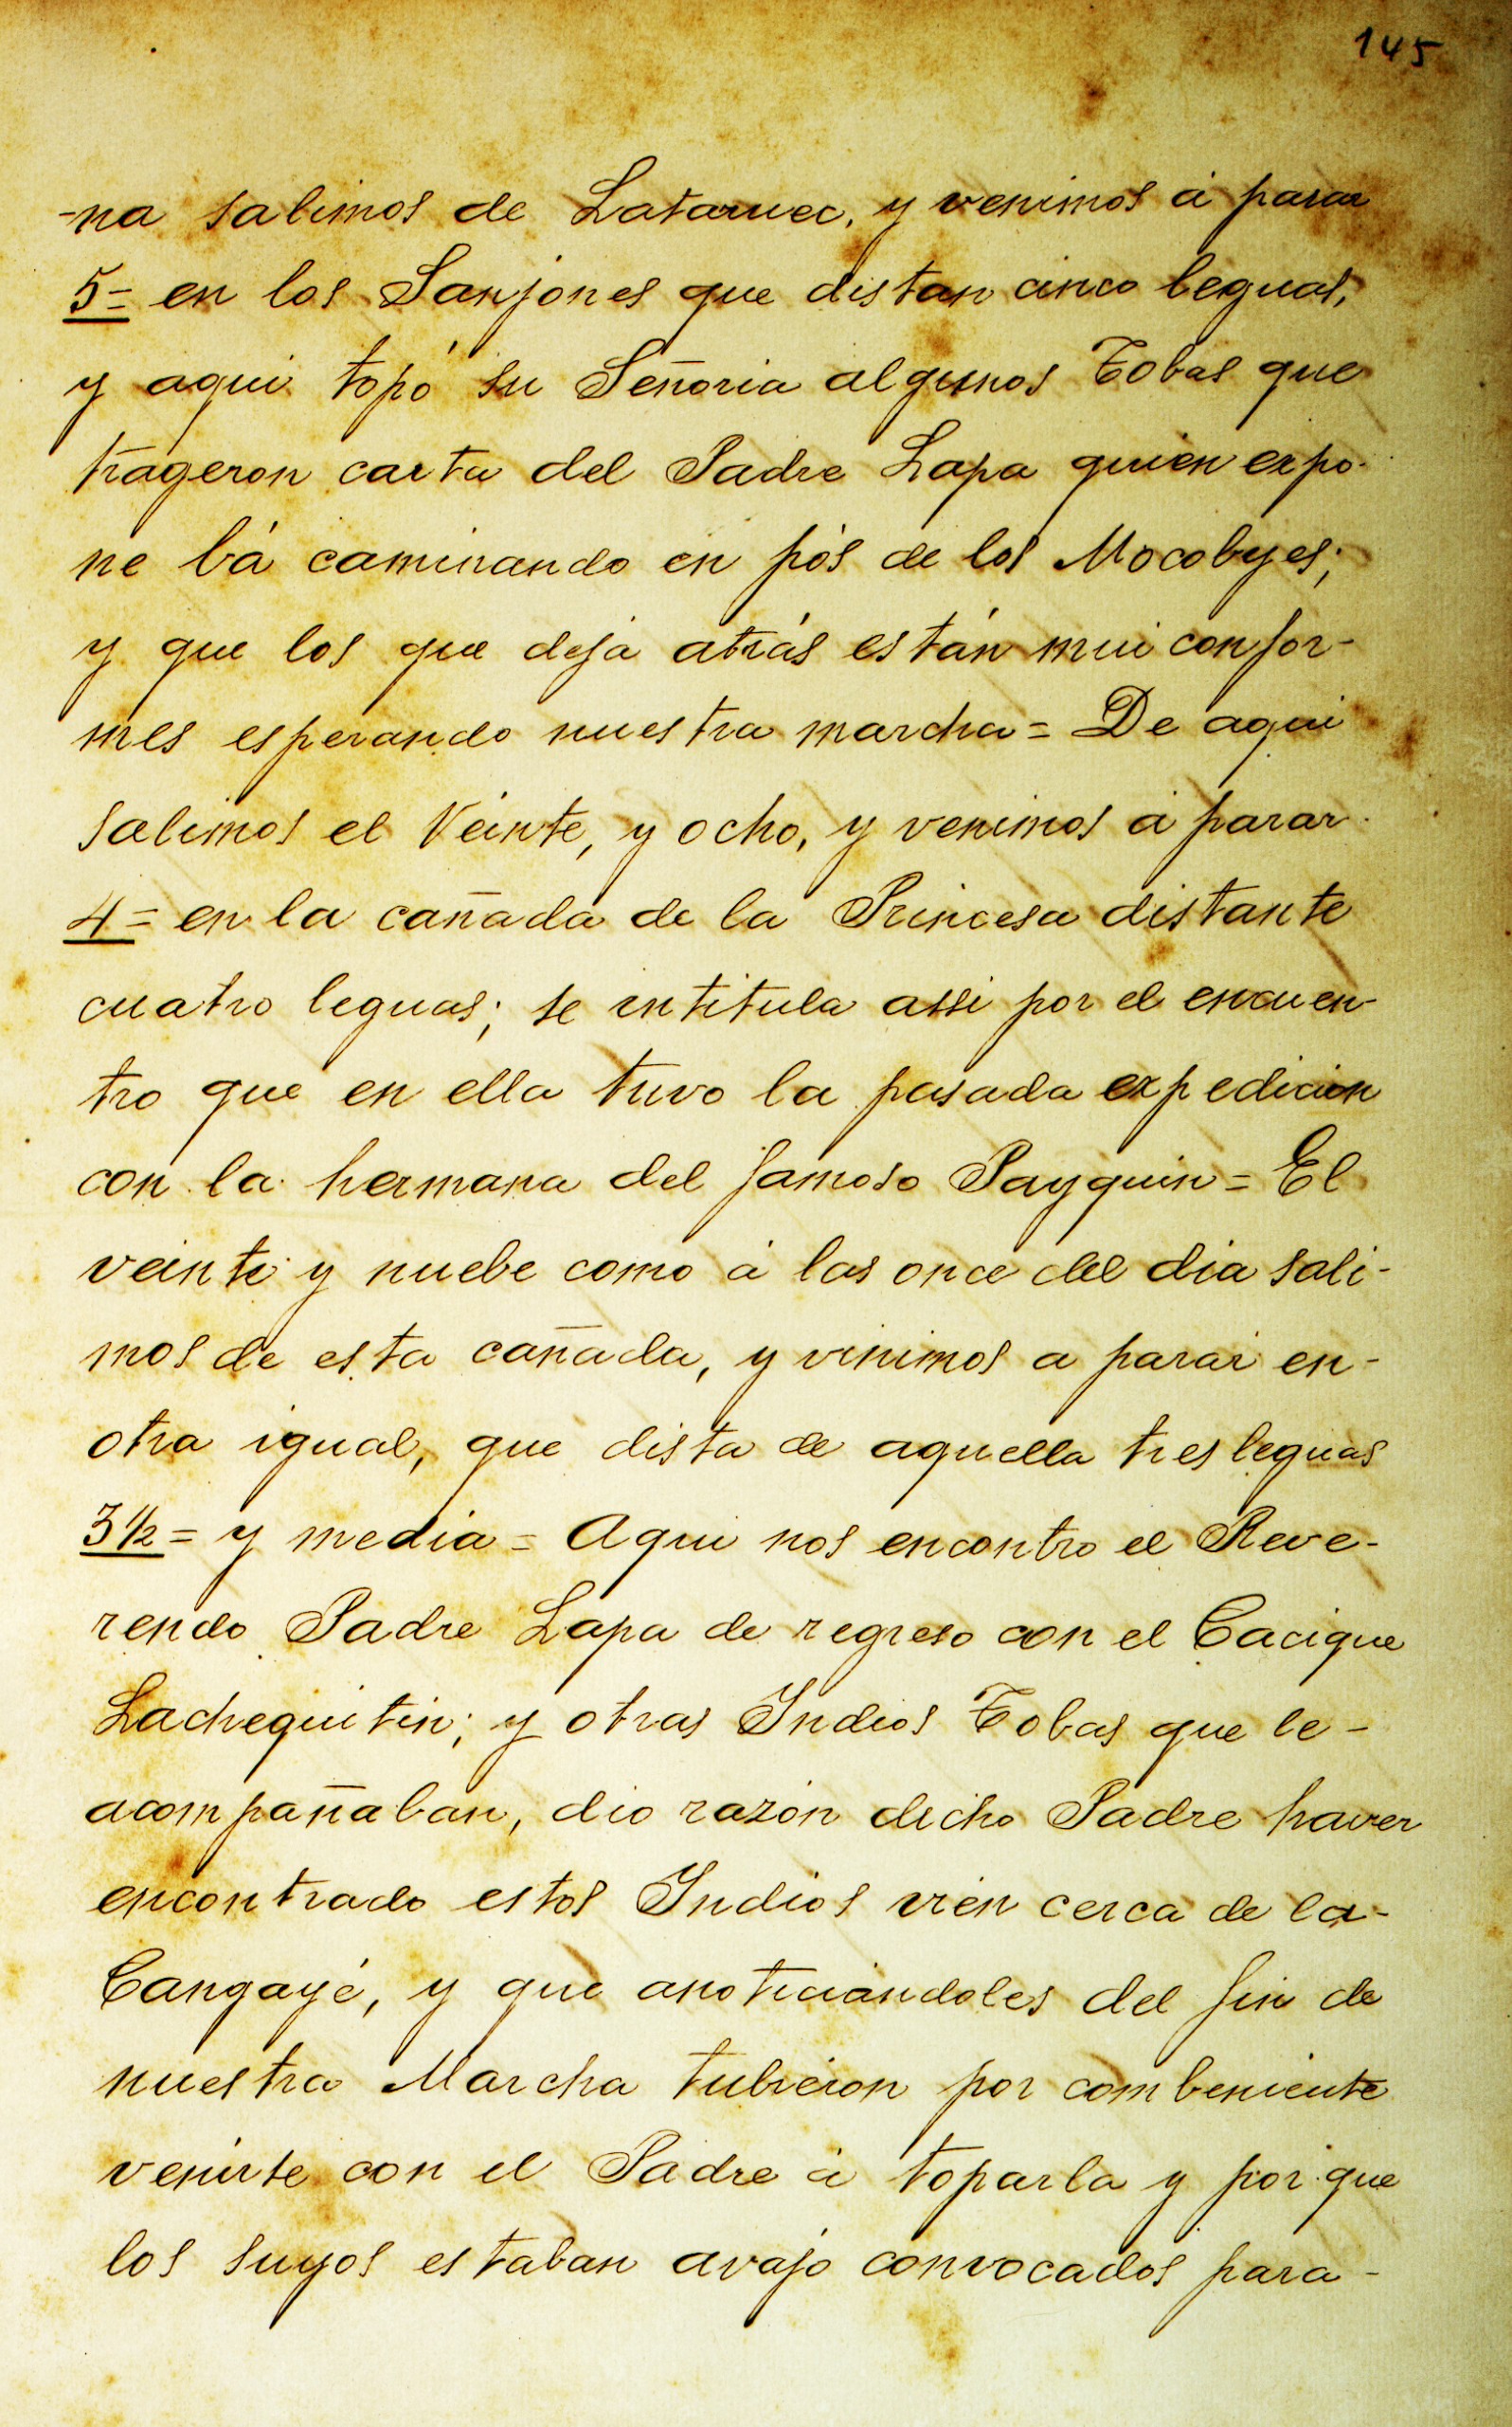 145
-na salimos de Lataruec, y venimos á parar
5= en los Sanjones que distan cinco leguas,
y aqui topó su Señoria algunos Tobas que
trageron carta del Padre Lapa quien expo-
ne bá caminando en pós de los Mocobyes;
y que los que deja atrás están mui confor-
mes esperando nuestra marcha = De aqui
salimos el Veinte, y ocho, y venimos á parar
4= en la cañada de la Princesa distante
cuatro leguas; se intitula assi por el encuen-
tro que en ella tuvo la pasada expedicion
con la hermana del famoso Payquin = El
veinte y nuebe como á las once del dia sali-
mos de esta cañada, y vinimos a parar en-
otra igual, que dista de aquella tres leguas
3½ = y media = Aqui nos encontro el Reve-
rendo Padre Lapa de regreso con el Cacique
Lachequitin; y otras Indios Tobas que le-
acompañaban, dio razón dicho Padre haver
encontrado estos Indios vien cerca de la-
Cangayé, y que anoticiándoles del fin de
nuestra Marcha tubieron por combeniente
venirse con el Padre á toparla y por que
los suyos estaban avajo convocados para-